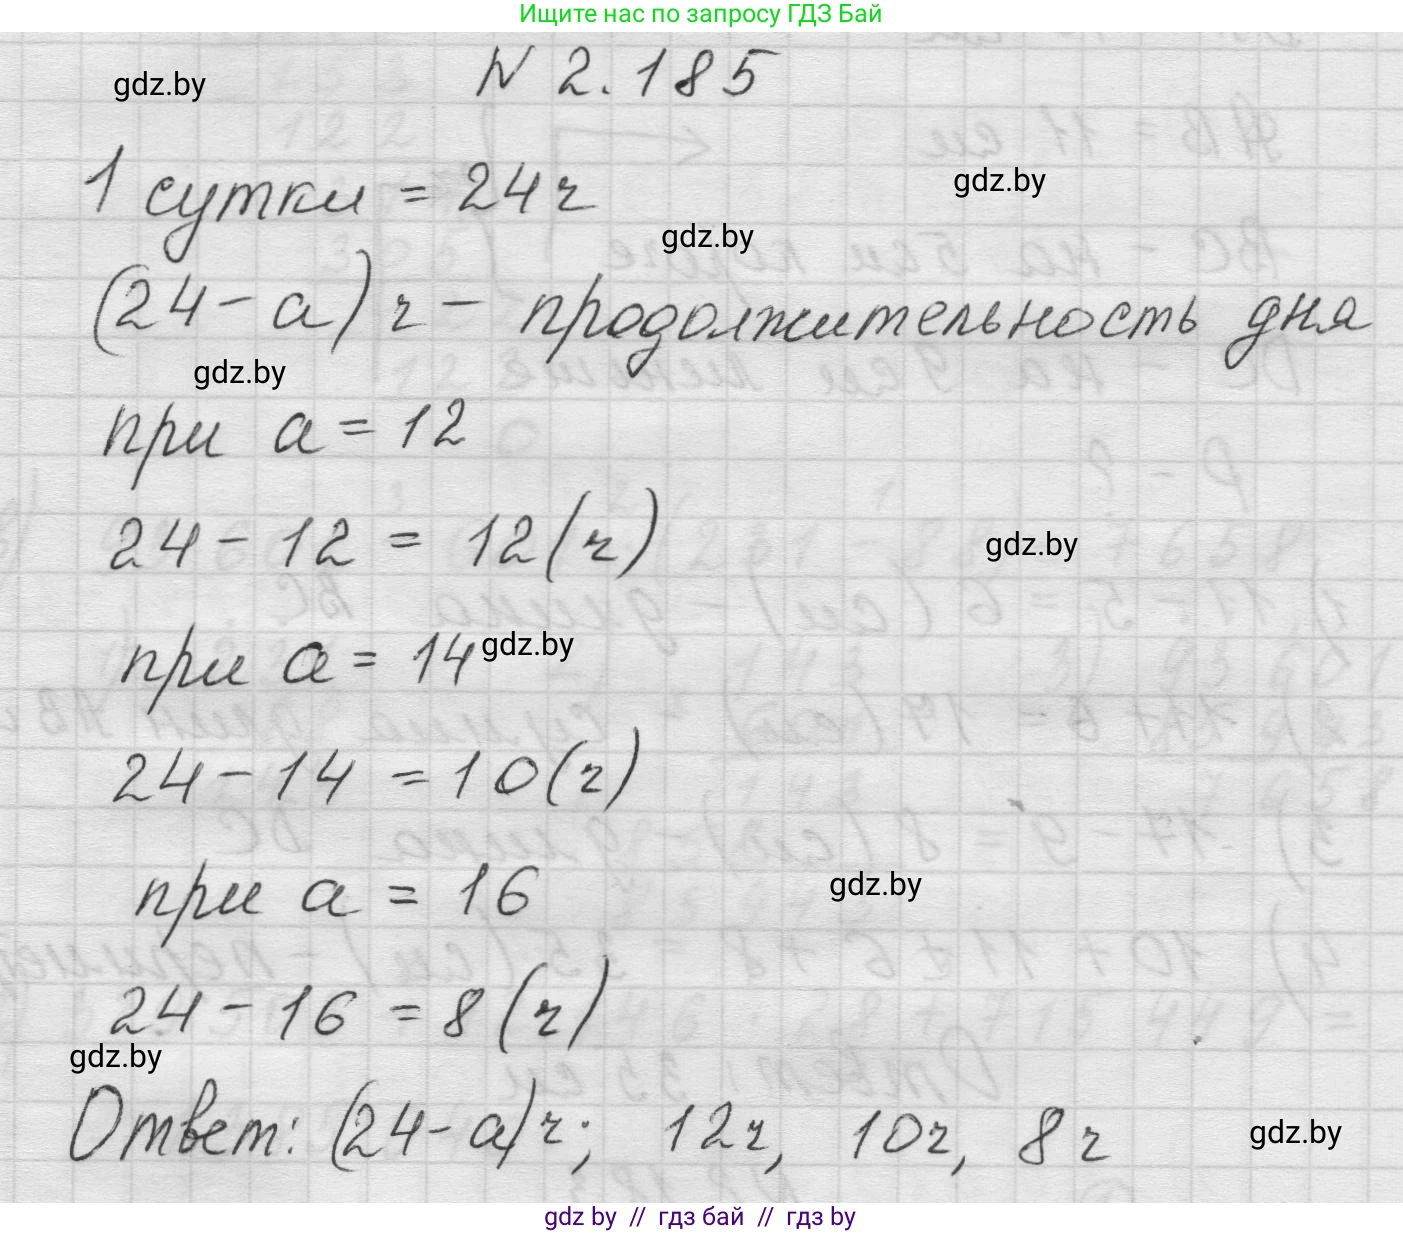 Ищите нас по запросу ГДЗ Бай
N 2.185
gdz.by
1 сутки = 24 ч
gdz.by
gdz.by
(24 - а) ч - продолжительность дня
gdz.by
при а = 12
24 - 12 = 12 (ч)
gdz.by
при а = 14
gdz.by
24 - 14 = 10 (ч)
при а = 16
gdz.by
24 - 16 = 8 (ч)
gdz.by
Ответ: (24 - а) ч; 12 ч, 10 ч, 8 ч
gdz.by
gdz by // гдз бай // гдз by